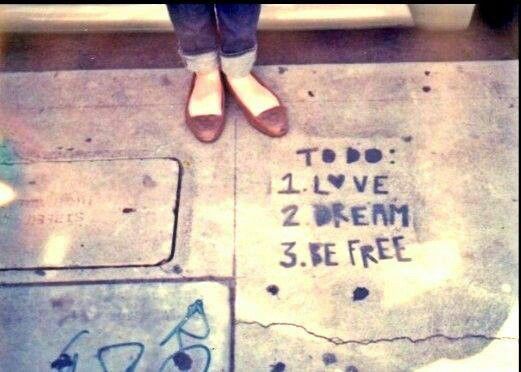 TO DO:
1. L♥VE
2 DREAM
3. BE FREE